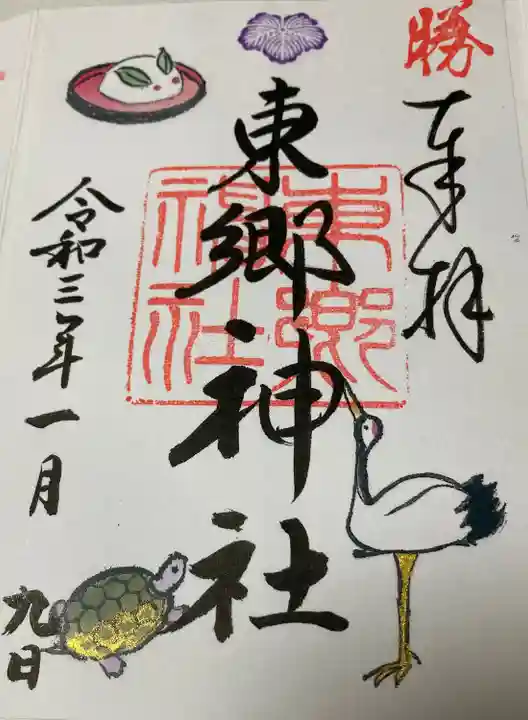 勝
奉拝
東郷神社
東郷神社
令和三年一月
九日